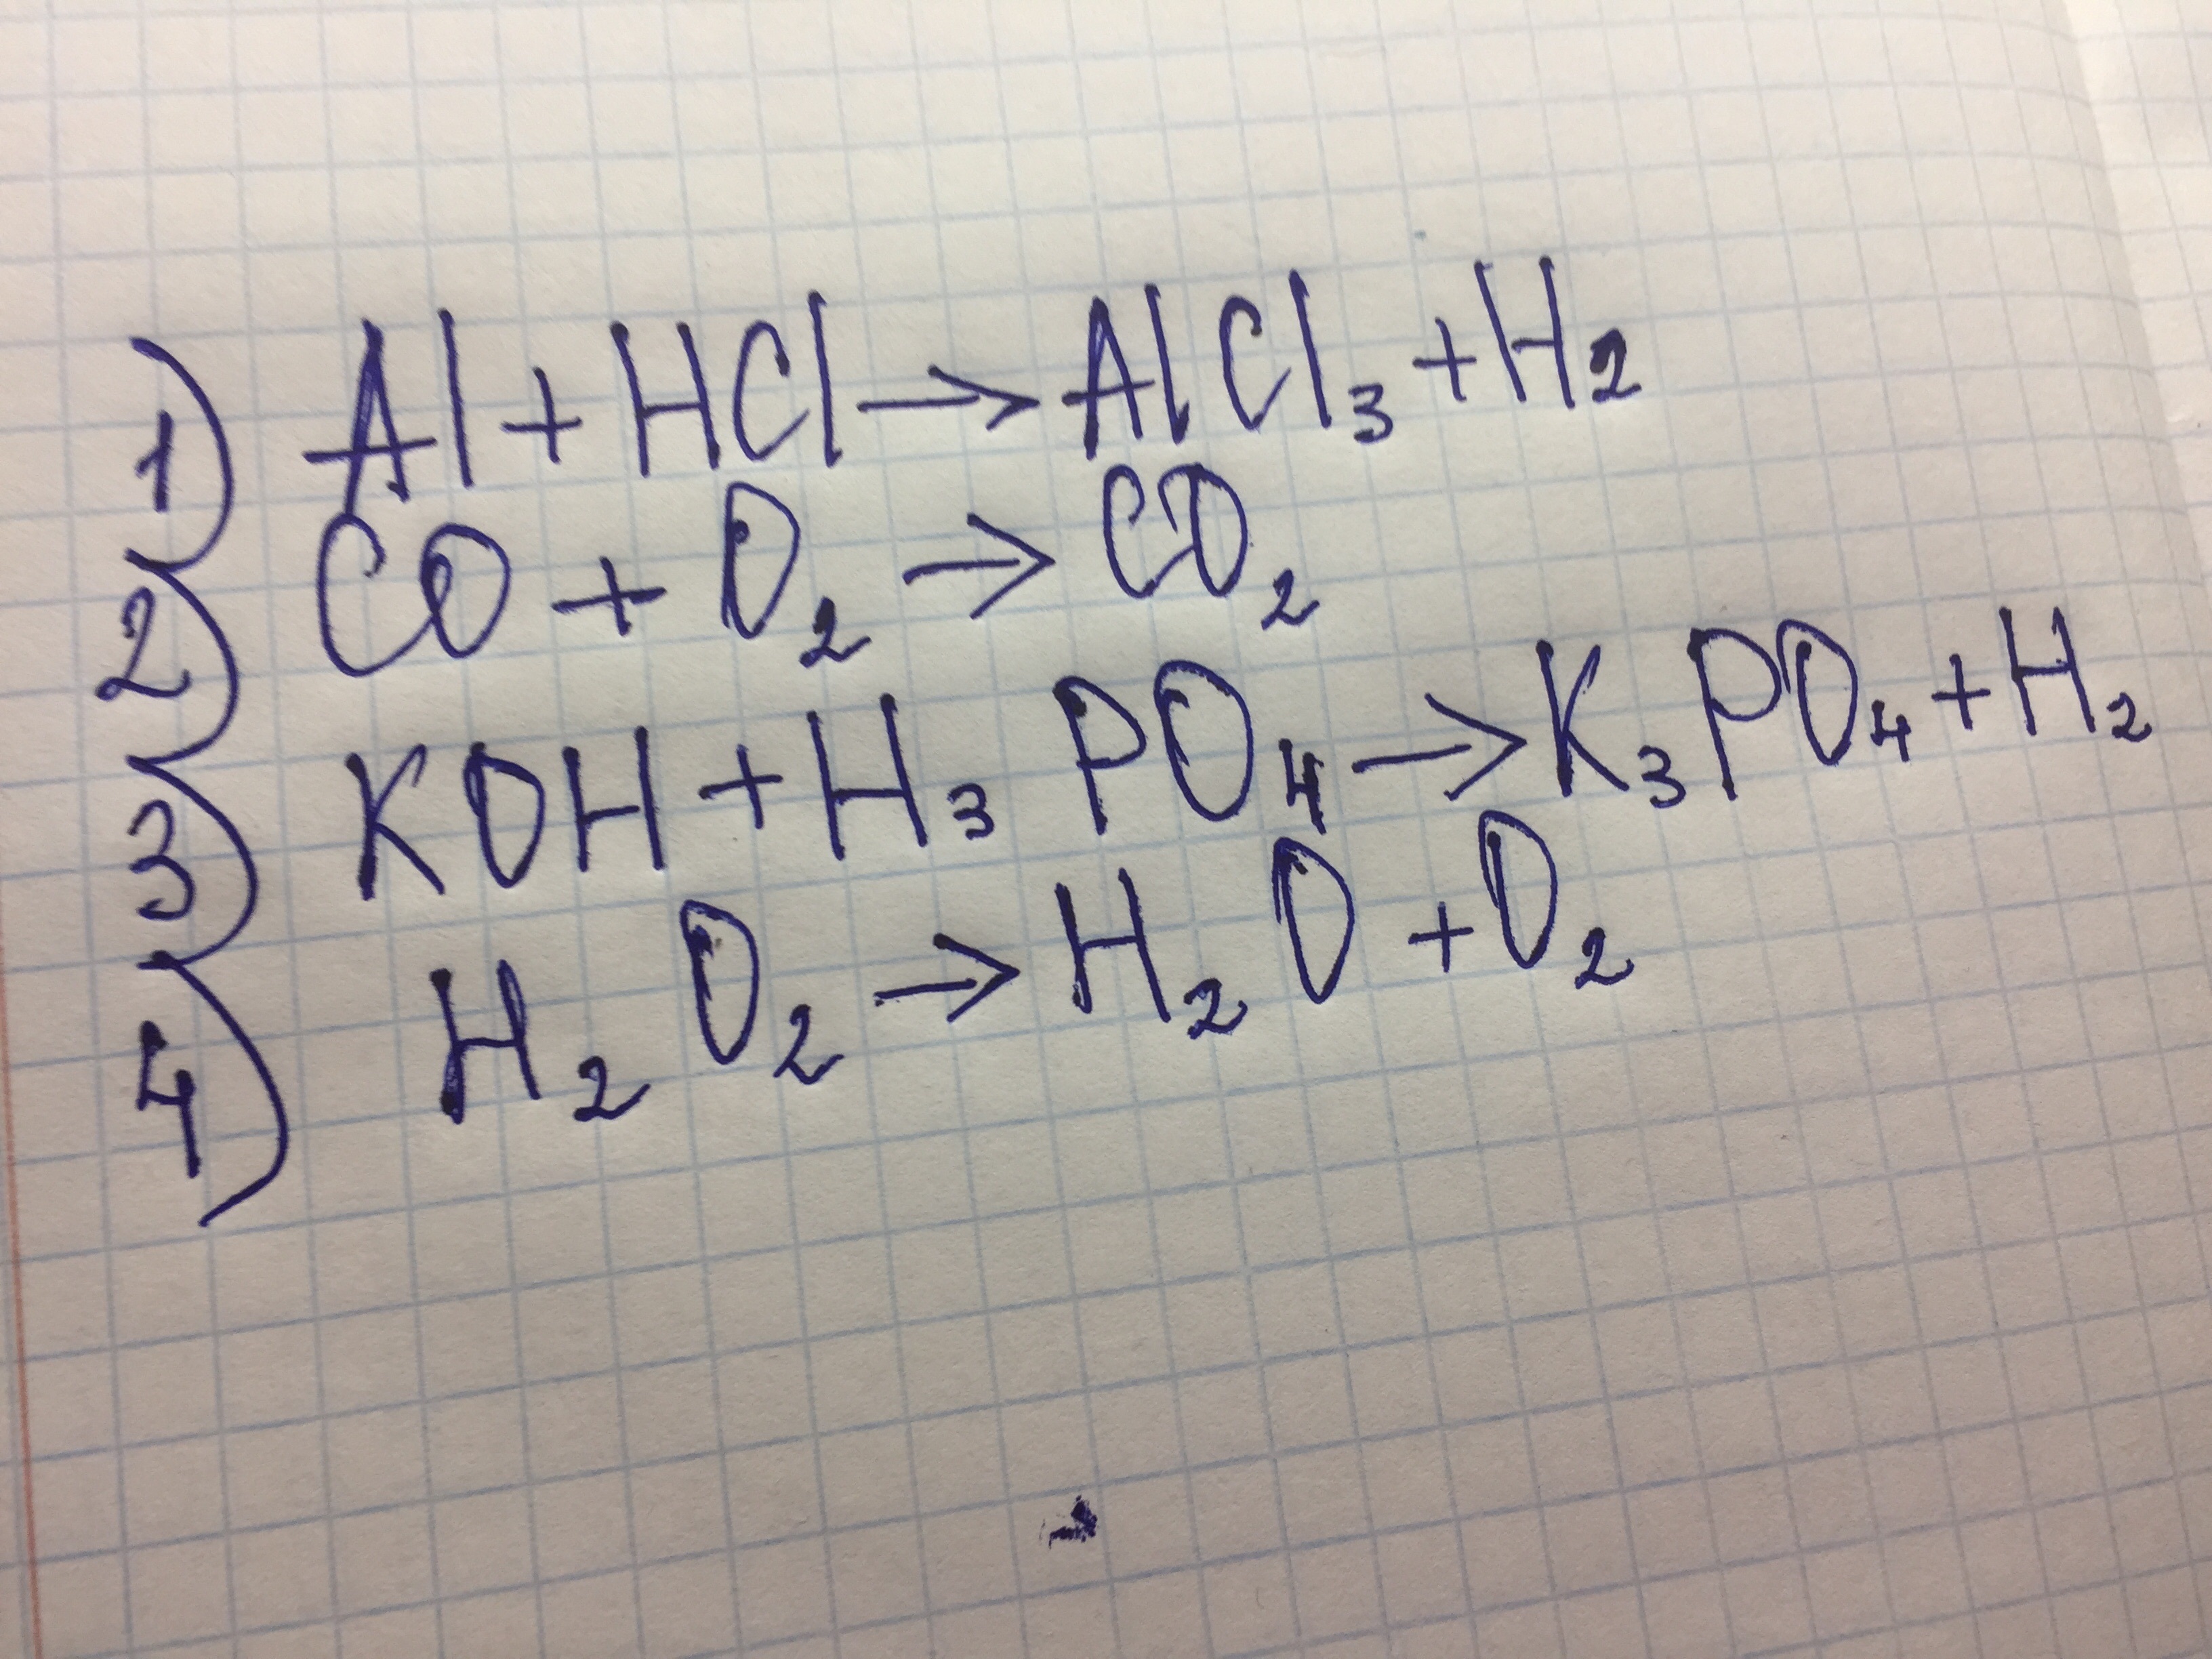 1) Al + HCl → AlCl₃ + H₂
2) CO + O₂ → CO₂
3) KOH + H₃PO₄ → K₃PO₄ + H₂
4) H₂O₂ → H₂O + O₂